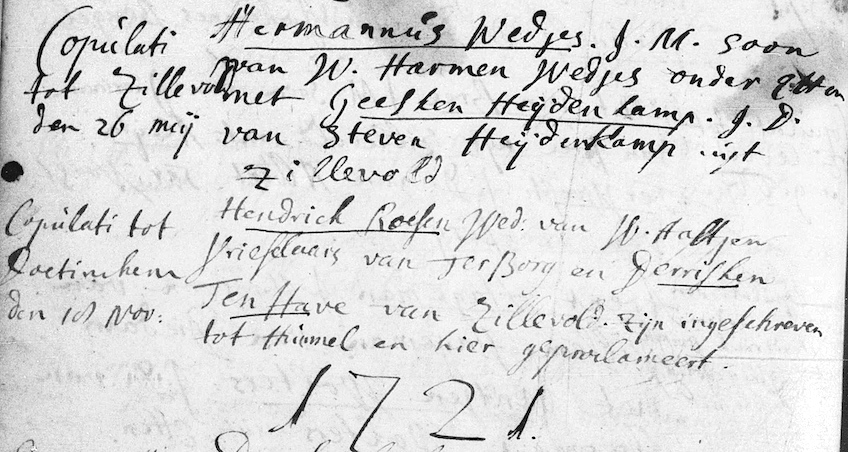 Copúlati
tot Zillevold
den 26 meij
Hermannús Wedjes. J. M. soon
van W. Harmen Wedjes onder
met Geesken Heijdenkamp. J. D.
van Steven Heijdenkamp uijt
Zillevold
Copúlati tot
Doetinchem
den 18 Nov:
Hendrick Roesen Wed: van W. Aaltjen
Frieselaars van TerBorg en Derrisken
Ten Have van Zillevold. Zijn ingeschreven
tot Hummel en hier geproclameert.
1721.